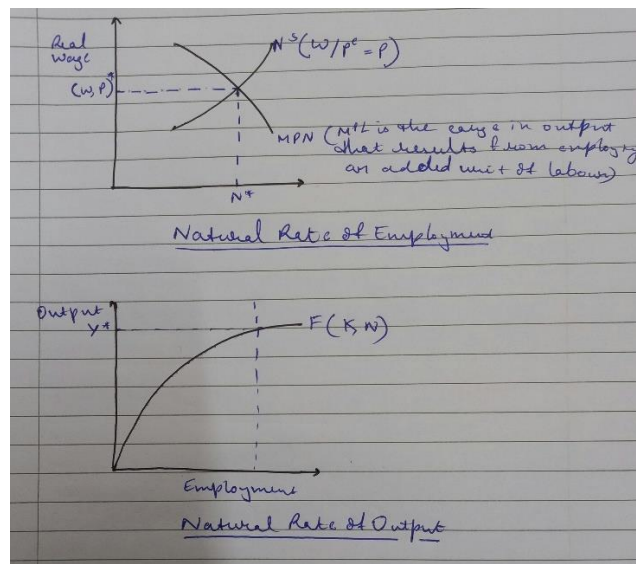 Real
Wage
N^S (W/P^e = P)
(W,P)*
MPN (MPL is the cange in output
that results from employing
an added unit of labour)
N*
Natural Rate of Employment
Output
Y*
F(K,N)
Employment
Natural Rate of Output